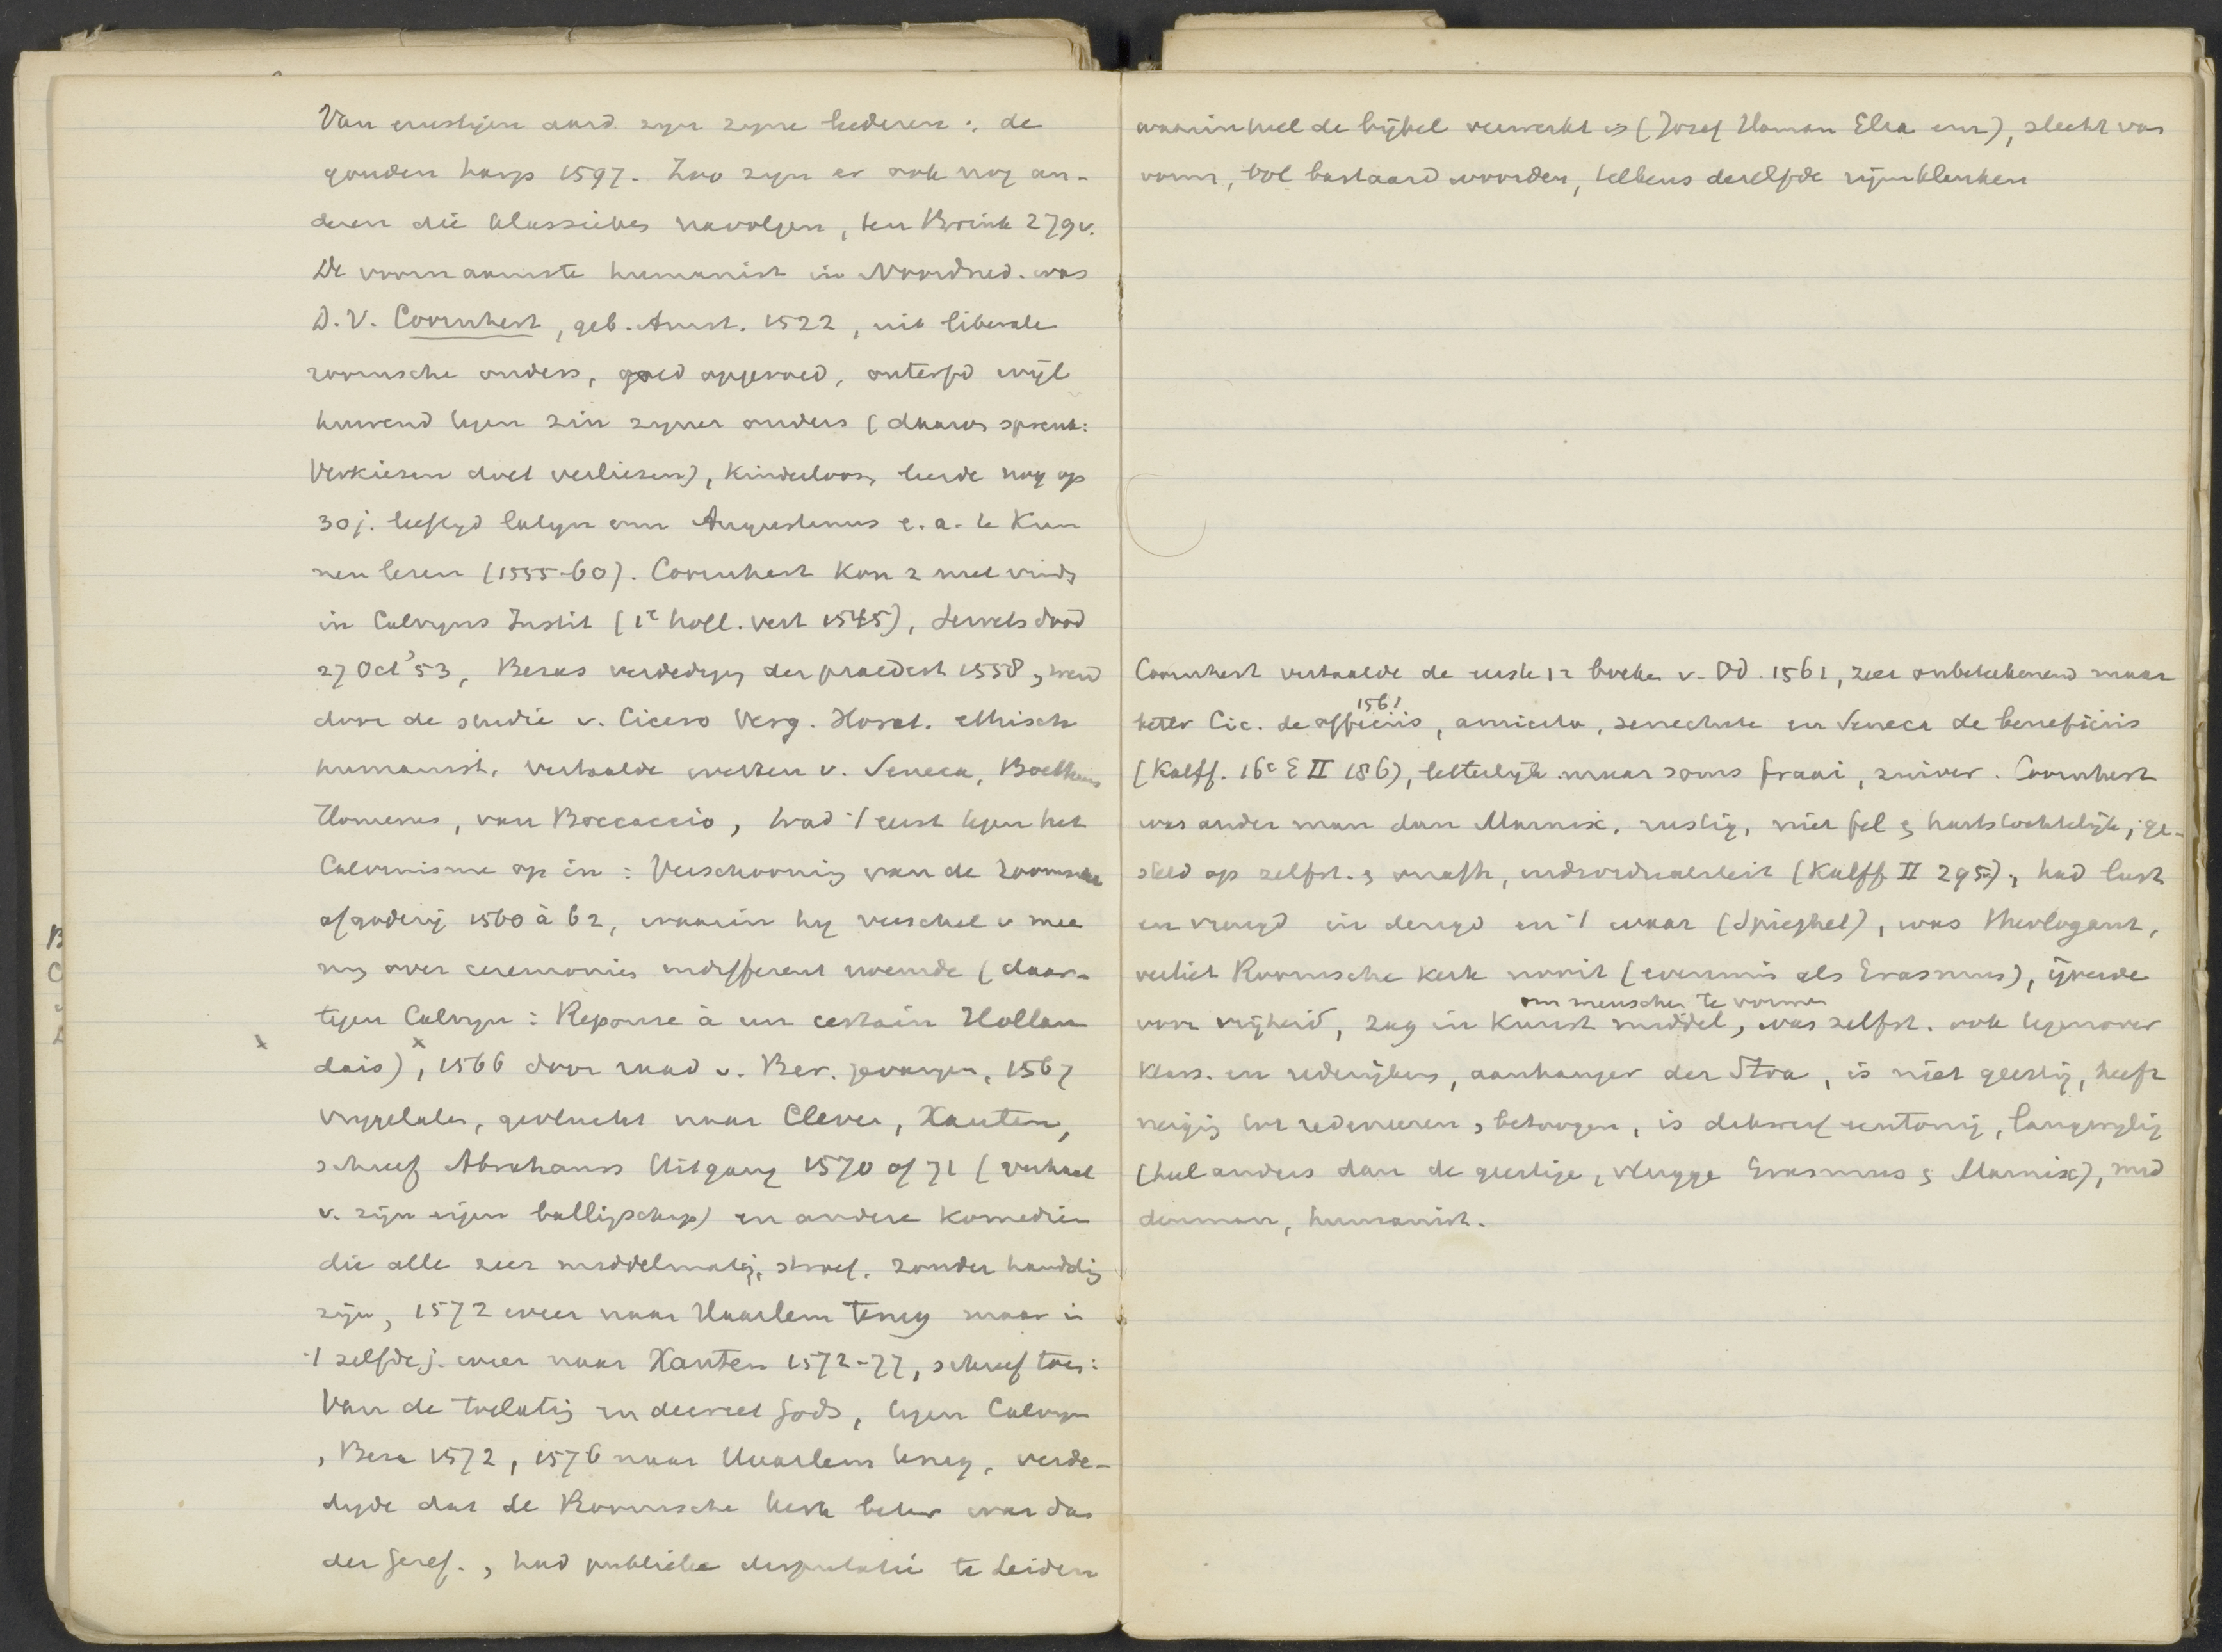 Van ernstigen aard zyn zyne liederen: de
gouden harp 1597. Zoo zyn er ook nog an-
deren die klassiekes navolgen, ten Brink 279v.
De voornaamste humanist in Noordned. was
D.V. Coornhert, geb. Amst. 1522, uit liberale
roomsche ouders, goed opgevoed, onterfd wijl
huwend tegen zin zyner ouders (daarop spreuk:
Verkiesen doet verliesen), kinderloos, leerde nog op
30 j. leeftyd latyn om Augustinus e.a. te kun
nen lezen (1555-60). Coornhert kon z niet vinds
in Calvyns Instit (1e holl. vert 1545), Servets dood
27 Oct '53, Bezas verdedigs der praedest 1558, werd
door de studie v. Cicero Verg. Horat. ethisch
humanist, vertaalde werken v. Seneca, Boethius
Homerus, van Boccaccio, trad 't eerst tegen het
Calvinisme op in: Verschooning van de Roomsche
afgoderij 1560 à 62, waarin hy verschil v mee
ng over ceremonies indifferent noemde (daar-
tegen Calvyn: Reponse à un certain Hollan
dais), 1566 door raad v. Ber. gevangen, 1567
vrygelaten, gevlucht naar Cleve, Xanten,
schreef Abrahams Uitgang 1570 of 71 (verhaal
v. zijn eigen ballingschap) en andere komedien
die alle zeer middelmatig, stroef, zonder handelig
zijn, 1572 weer naar Haarlem terug maar in
't zelfde j. weer naar Xanten 1572-77, schreef toen:
Van de toelatig en decreet Gods, tegen Calvyn
, Beza 1572, 1576 naar Haarlem terug, verde-
digde dat de Roomsche kerk beter was dan
der Geref., had publieke disputatie te Leiden
waarin heel de bijbel verwerkt is (Jozef Haman Elia enz), slecht van
vorm, vol bastaardwoorden, telkens dezelfde rijmklanken
Coornhert vertaalde de eerste 12 boeken v. Od. 1561, zeer onbeteekenend maar
1561
beter Cic. de officiis, amicitia, senectute en Seneca de beneficiis
(Kalff. 16e E II 186), letterlijk maar soms fraai, zuiver. Coornhert
was ander man dan Marnix, rustig, niet fel & hartstochtelijk, ge-
steld op zelfst. & onafh, individualiteit (Kalff II 295), had lust
en vreugd in deugd en 't waar (Spieghel), was theologant,
verliet Roomsche kerk nooit (evenmin als Erasmus), ijverde
om menschen te vormen
voor vrijheid, zag in kunst middel, was zelfst. ook tegenover
klass. en rederijkers, aanhanger der Stoa, is niet geestig, heeft
neigig tot redeneeren, betoogen, is dikwerf eentonig, langwylig
(heel anders dan de geestige, vlugge Erasmus & Marnix), mid
denman, humanist.